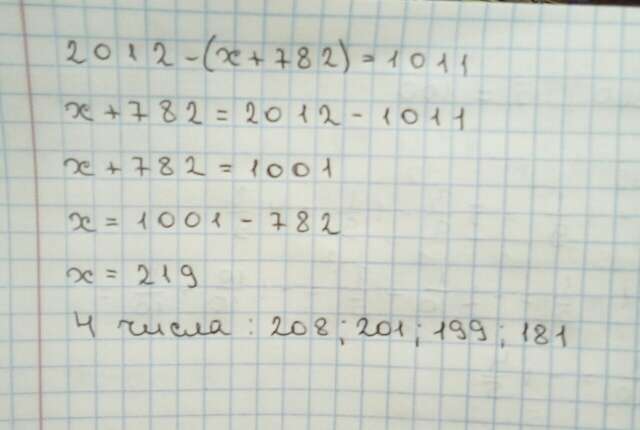 2012-(x+782)=1011
x+782=2012-1011
x+782=1001
x=1001-782
x=219
4 числа: 208; 201; 199; 181